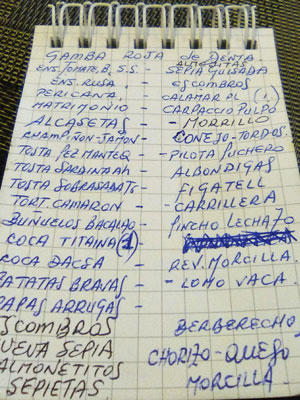 GAMBA ROJA de DENIA
ALMEJITAS
ENS. TOMATE, B, S.S. - SEPIA GUISADA
ENS. RUSA - ESCOMBROS
PERICANA - CALAMAR PL (1)
MATRIMONIO - CARPACCIO PULPO
ALCASETAS - MORRILLO
CHAMPIÑON-JAMON - CONEJO-TORDOS
TOSTA PEZ MANTEQ - PILOTA PUCHERO
TOSTA SARDINA AH - ALBONDIGAS
TOSTA SOBRASADA TS - FIGATELL
TORT. CAMARON - CARRILLERA
BUÑUELOS BACALAO - PINCHO LECHAZO
COCA TITAINA (1)
COCA DACSA - REV. MORCILLA
PATATAS BRAVAS - LOMO VACA
PAPAS ARRUGAS -
ESCOMBROS BERBERECHO
HUEVA SEPIA CHORIZO-QUESO
SALMONETITOS MORCILLA
SEPIETAS